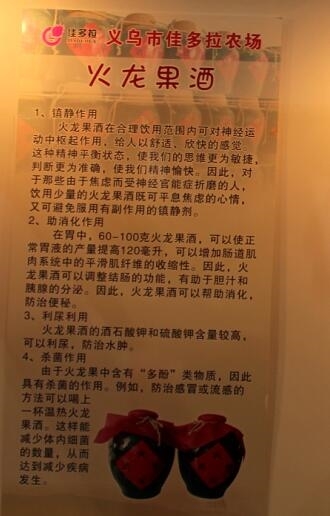 佳多拉
义乌市佳多拉农场
火龙果酒
1、镇静作用
火龙果酒在合理饮用范围内可对神经运
动中枢起作用，给人以舒适、欣快的感觉。
这种精神平衡状态，使我们的思维更为敏捷，
判断更为准确，使我们精神愉快。因此，对
于那些由于焦虑而受神经官能症折磨的人，
饮用少量的火龙果酒既可平息焦虑的心情，
又可避免服用有副作用的镇静剂。
2、助消化作用
在胃中，60-100克火龙果酒，可以使正
常胃液的产量提高120毫升，可以增加肠道肌
肉系统中的平滑肌纤维的收缩性。因此，火
龙果酒可以调整结肠的功能，有助于胆汁和
胰腺的分泌。因此，火龙果酒可以帮助消化，
防治便秘。
3、利尿利用
火龙果酒的酒石酸钾和硫酸钾含量较高，
可以利尿，防治水肿。
4、杀菌作用
由于火龙果中含有“多酚”类物质，因此
具有杀菌的作用。例如，防治感冒或流感的
方法可以喝上
一杯温热火龙
果酒。这样能
减少体内细菌
的数量，从而
达到减少疾病
发生。